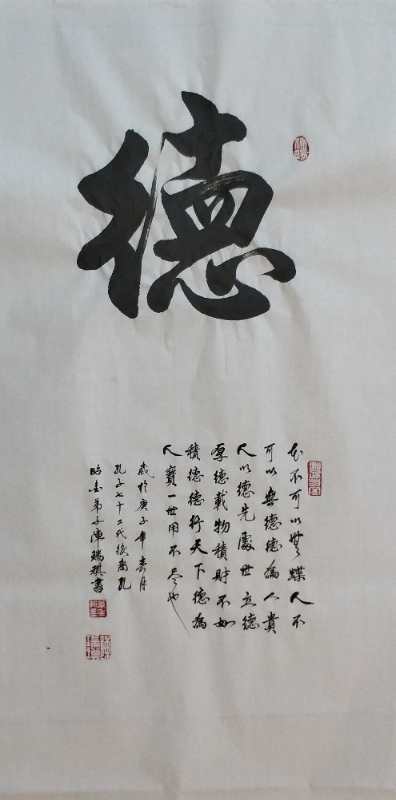 德
花不可以無蝶人不
可以無德德為人貴
人以德先處世立德
厚德載物積財不如
積德德行天下德為
人寶一世用不尽也
歲於庚子年春月
孔子七十二代後裔孔
弟子陳瑞祺書